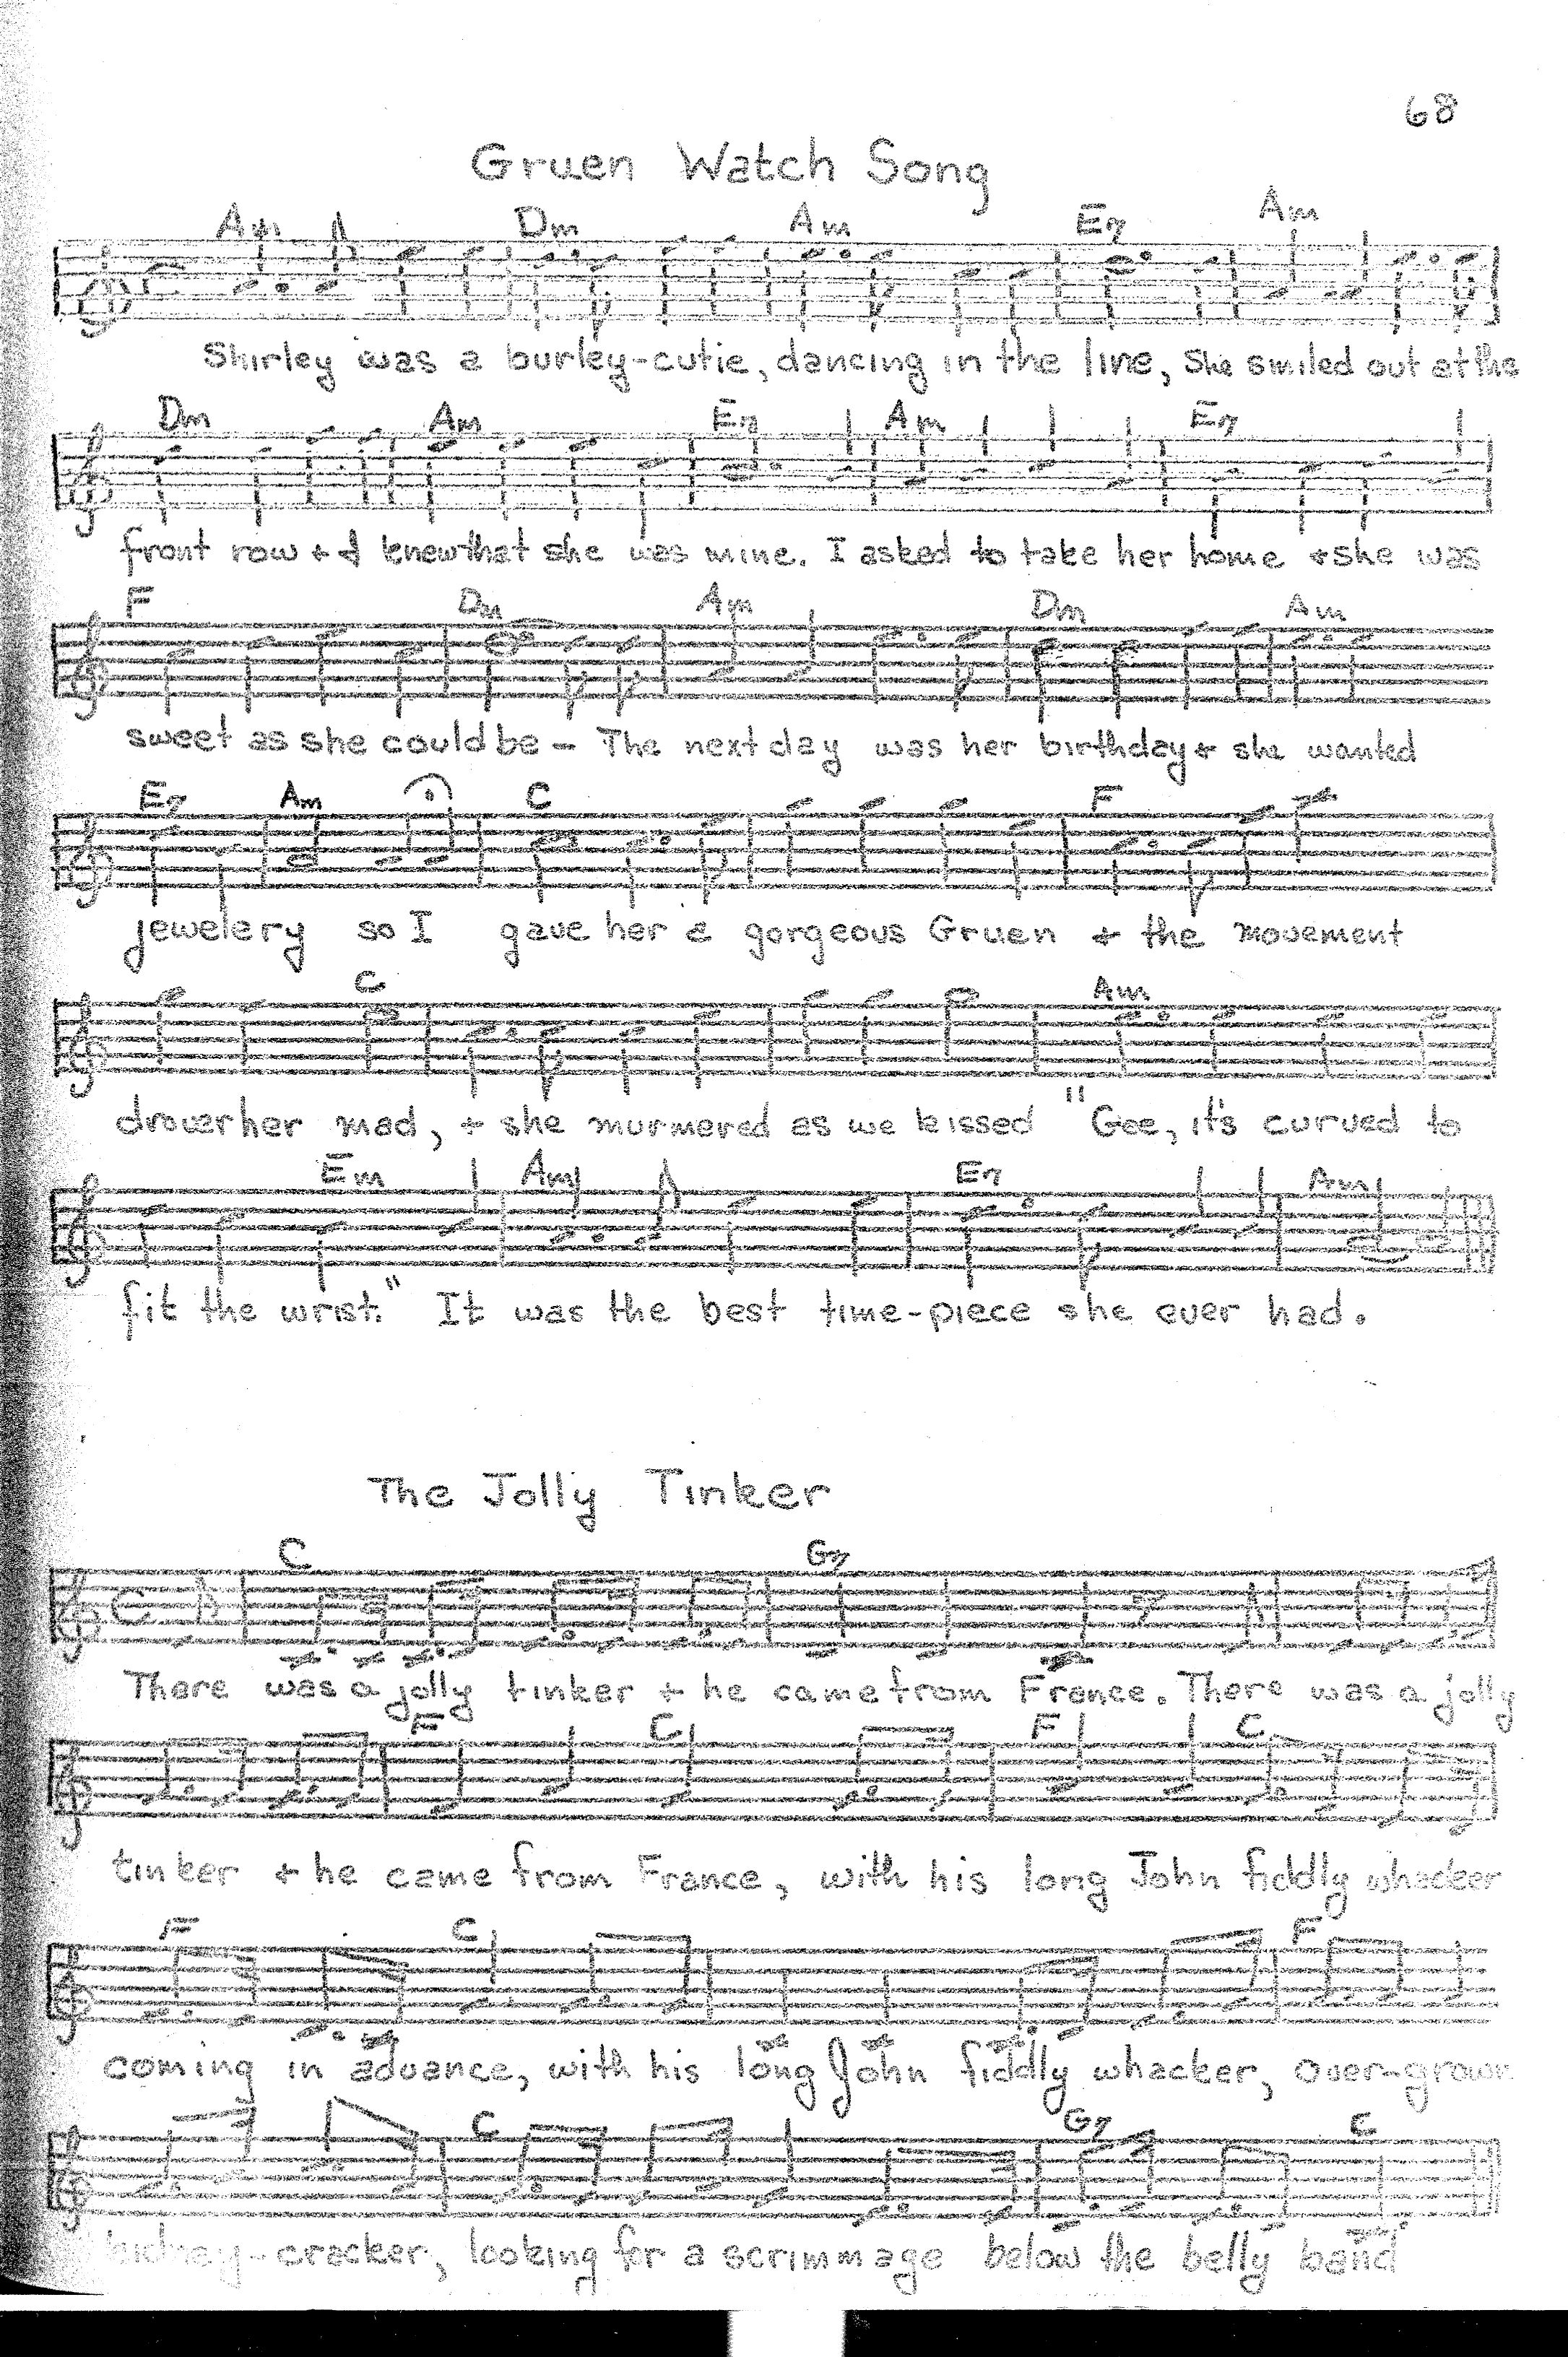 68
Gruen Watch Song
Am Dm Am E7 Am
Shirley was a burley-cutie, dancing in the line, She smiled out at the
Dm Am E7 Am E7
front row + I knew that she was mine. I asked to take her home + she was
F Dm Am Dm Am
sweet as she could be - The next day was her birthday + she wanted
E7 Am C F
jewelery so I gave her a gorgeous Gruen + the movement
C Am
drove her mad, + she murmered as we kissed "Gee, it's curved to
Em Am E7 Am
fit the wrist." It was the best time-piece she ever had.
The Jolly Tinker
C G7
There was a jolly tinker + he came from France. There was a jolly
F C F C
tinker + he came from France, with his long John fiddly whacker
F C F
coming in advance, with his long John fiddly whacker, over-grown
C G7 C
kidney-cracker, looking for a scrimmage below the belly band